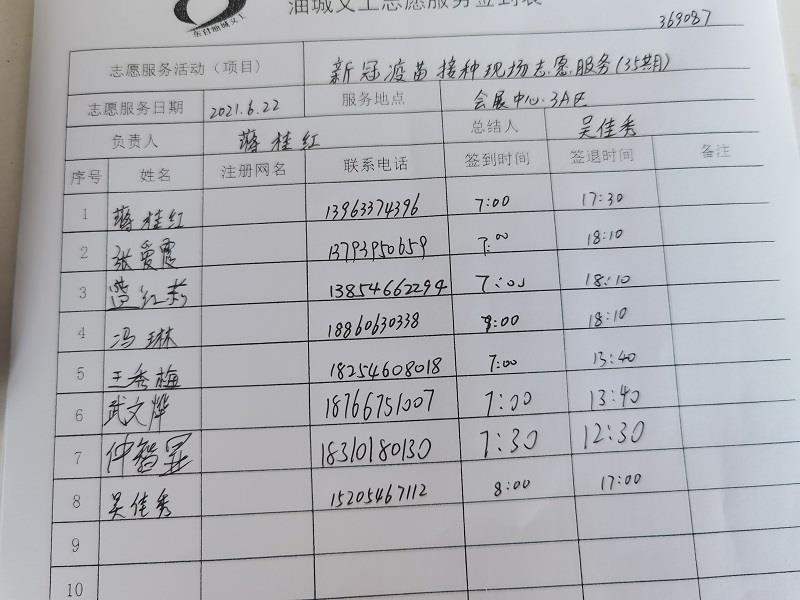 东营油城义工
油城义工志愿服务签到表
369087
志愿服务活动（项目） 新冠疫苗接种现场志愿服务(35期)
志愿服务日期 2021.6.22 服务地点 会展中心.3A区
负责人 蒋桂红 总结人 吴佳秀
序号 姓名 注册网名 联系电话 签到时间 签退时间 备注
1 蒋桂红 13963374396 7:00 17:30
2 张爱霞 13793950659 7:00 18:10
3 红莉 13854662294 7:00 18:10
4 冯琳 18860630338 8:00 18:10
5 王秀梅 18254608018 7:00 13:40
6 武文烨 18766751007 7:00 13:40
7 仲智 18310180130 7:30 12:30
8 吴佳秀 15205467112 8:00 17:00
9
10